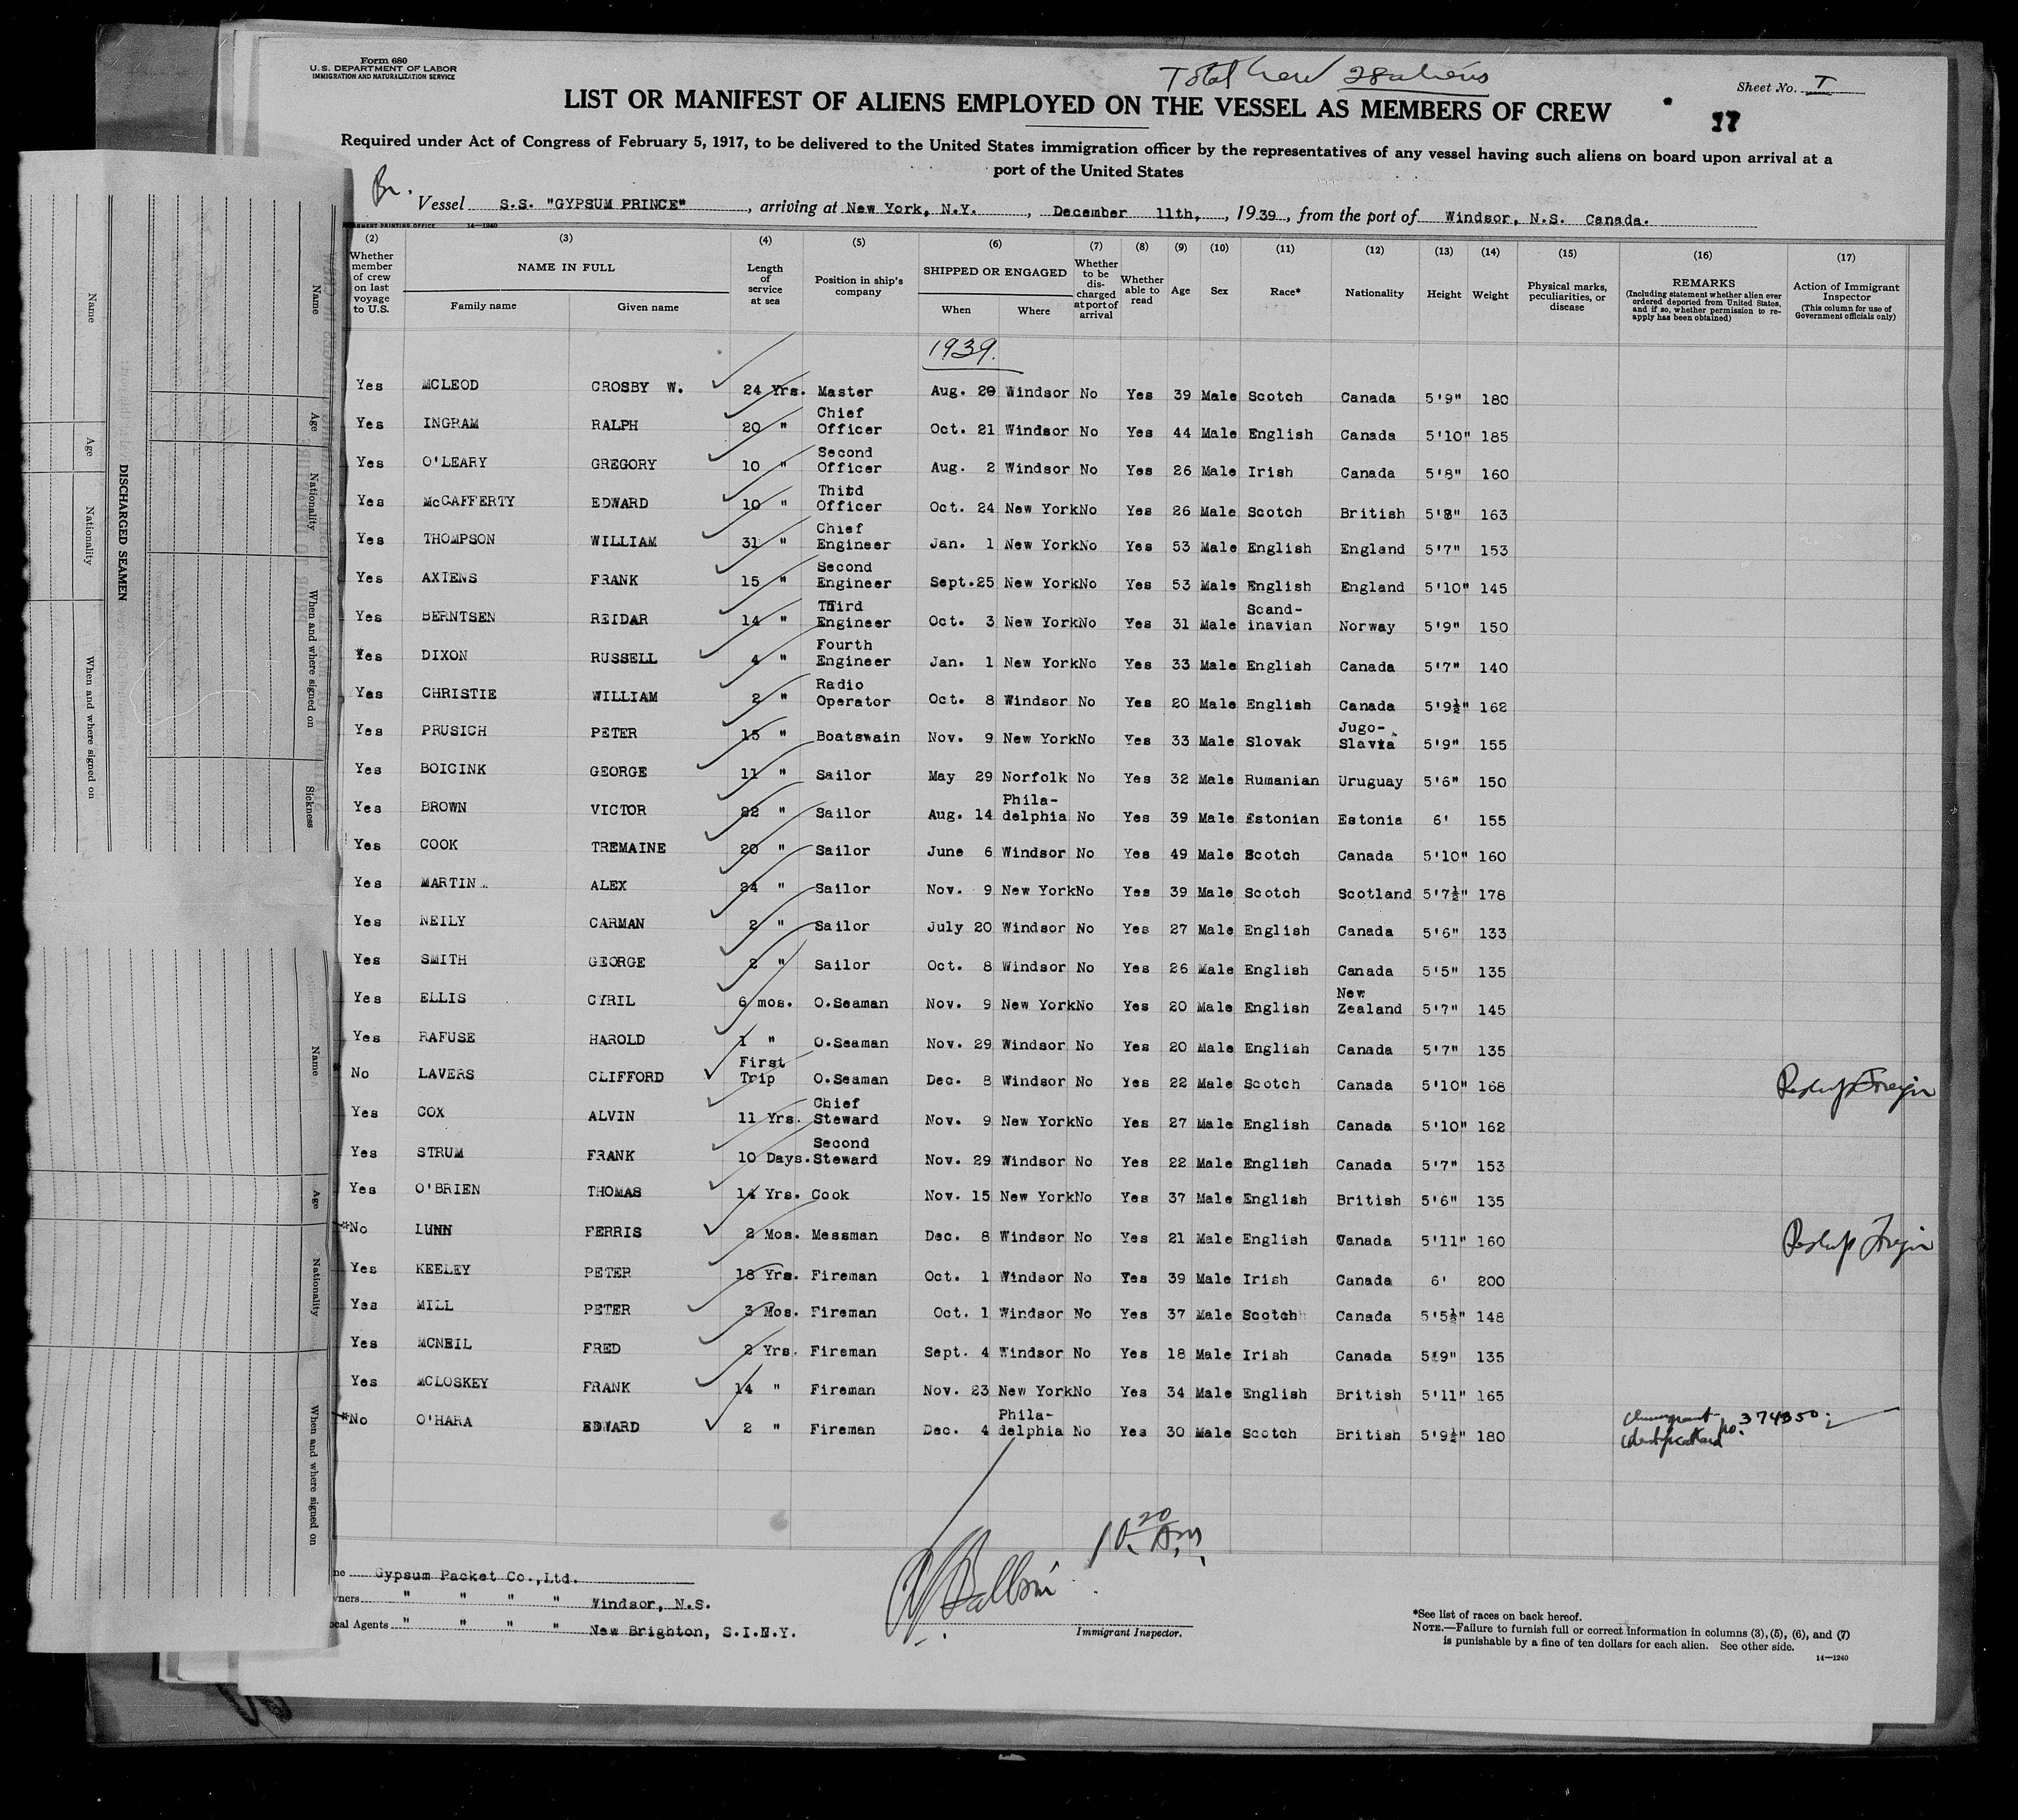 Form 680
U.S. DEPARTMENT OF LABOR
IMMIGRATION AND NATURALIZATION SERVICE
Total Crew 28 aliens
Sheet No. T
LIST OR MANIFEST OF ALIENS EMPLOYED ON THE VESSEL AS MEMBERS OF CREW
37
Required under Act of Congress of February 5, 1917, to be delivered to the United States immigration officer by the representatives of any vessel having such aliens on board upon arrival at a
port of the United States
Br.
Vessel S.S. "GYPSUM PRINCE", arriving at New York, N.Y., December 11th, 1939, from the port of Windsor, N.S. Canada.
14—1240
(2) (3) (4) (5) (6) (7) (8) (9) (10) (11) (12) (13) (14) (15) (16) (17)
Whether member of crew on last voyage to U.S. NAME IN FULL Family name Given name Length of service at sea Position in ship's company SHIPPED OR ENGAGED When Where Whether to be discharged at port of arrival Whether able to read Age Sex Race* Nationality Height Weight Physical marks, peculiarities, or disease REMARKS (Including statement whether alien ever ordered deported from United States, and if so, whether permission to reapply has been obtained) Action of Immigrant Inspector (This column for use of Government officials only)
1939.
Yes MCLEOD CROSBY W. 24 Yrs. Master Aug. 20 Windsor No Yes 39 Male Scotch Canada 5'9" 180
Yes INGRAM RALPH 20 " Chief Officer Oct. 21 Windsor No Yes 44 Male English Canada 5'10" 185
Yes O'LEARY GREGORY 10 " Second Officer Aug. 2 Windsor No Yes 26 Male Irish Canada 5'8" 160
Yes McCAFFERTY EDWARD 10 " Third Officer Oct. 24 New York No Yes 26 Male Scotch British 5'8" 163
Yes THOMPSON WILLIAM 31 " Chief Engineer Jan. 1 New York No Yes 53 Male English England 5'7" 153
Yes AXTENS FRANK 15 " Second Engineer Sept. 25 New York No Yes 53 Male English England 5'10" 145
Yes BERNTSEN REIDAR 14 " Third Engineer Oct. 3 New York No Yes 31 Male Scand-inavian Norway 5'9" 150
Yes DIXON RUSSELL 4 " Fourth Engineer Jan. 1 New York No Yes 33 Male English Canada 5'7" 140
Yes CHRISTIE WILLIAM 2 " Radio Operator Oct. 8 Windsor No Yes 20 Male English Canada 5'9½" 162
Yes PRUSICH PETER 15 " Boatswain Nov. 9 New York No Yes 33 Male Slovak Jugo-Slavia 5'9" 155
Yes BOICINK GEORGE 11 " Sailor May 29 Norfolk No Yes 32 Male Rumanian Uruguay 5'6" 150
Yes BROWN VICTOR 22 " Sailor Aug. 14 Phila-delphia No Yes 39 Male Estonian Estonia 6' 155
Yes COOK TREMAINE 20 " Sailor June 6 Windsor No Yes 49 Male Scotch Canada 5'10" 160
Yes MARTIN ALEX 24 " Sailor Nov. 9 New York No Yes 39 Male Scotch Scotland 5'7½" 178
Yes NEILY CARMAN 2 " Sailor July 20 Windsor No Yes 27 Male English Canada 5'6" 133
Yes SMITH GEORGE 2 " Sailor Oct. 8 Windsor No Yes 26 Male English Canada 5'5" 135
Yes ELLIS CYRIL 6 mos. O.Seaman Nov. 9 New York No Yes 20 Male English New Zealand 5'7" 145
Yes RAFUSE HAROLD 1 " O.Seaman Nov. 29 Windsor No Yes 20 Male English Canada 5'7" 135
No LAVERS CLIFFORD First Trip O.Seaman Dec. 8 Windsor No Yes 22 Male Scotch Canada 5'10" 168
Yes COX ALVIN 11 Yrs. Chief Steward Nov. 9 New York No Yes 27 Male English Canada 5'10" 162
Yes STRUM FRANK 10 Days. Second Steward Nov. 29 Windsor No Yes 22 Male English Canada 5'7" 153
Yes O'BRIEN THOMAS 14 Yrs. Cook Nov. 15 New York No Yes 37 Male English British 5'6" 135
*No LUNN FERRIS 2 Mos. Messman Dec. 8 Windsor No Yes 21 Male English Canada 5'11" 160
Yes KEELEY PETER 18 Yrs. Fireman Oct. 1 Windsor No Yes 39 Male Irish Canada 6' 200
Yes MILL PETER 3 Mos. Fireman Oct. 1 Windsor No Yes 37 Male Scotch Canada 5'5½" 148
Yes MCNEIL FRED 2 Yrs. Fireman Sept. 4 Windsor No Yes 18 Male Irish Canada 5'9" 135
Yes MCLOSKEY FRANK 14 " Fireman Nov. 23 New York No Yes 34 Male English British 5'11" 165
*No O'HARA EDWARD 2 " Fireman Dec. 4 Phila-delphia No Yes 30 Male Scotch British 5'9½" 180 Immigrant Identification No. 374350
10 20 A.M.
Gypsum Packet Co.,Ltd.
" " " " Windsor, N.S.
Local Agents " " " " New Brighton, S.I.N.Y.
Immigrant Inspector.
*See list of races on back hereof.
NOTE.—Failure to furnish full or correct information in columns (3), (5), (6), and (7)
is punishable by a fine of ten dollars for each alien. See other side.
14—1240
DISCHARGED SEAMEN
Name Age Nationality When and where signed on
Name Age Nationality When and where signed on Sickness
Name Age Nationality When and where signed on